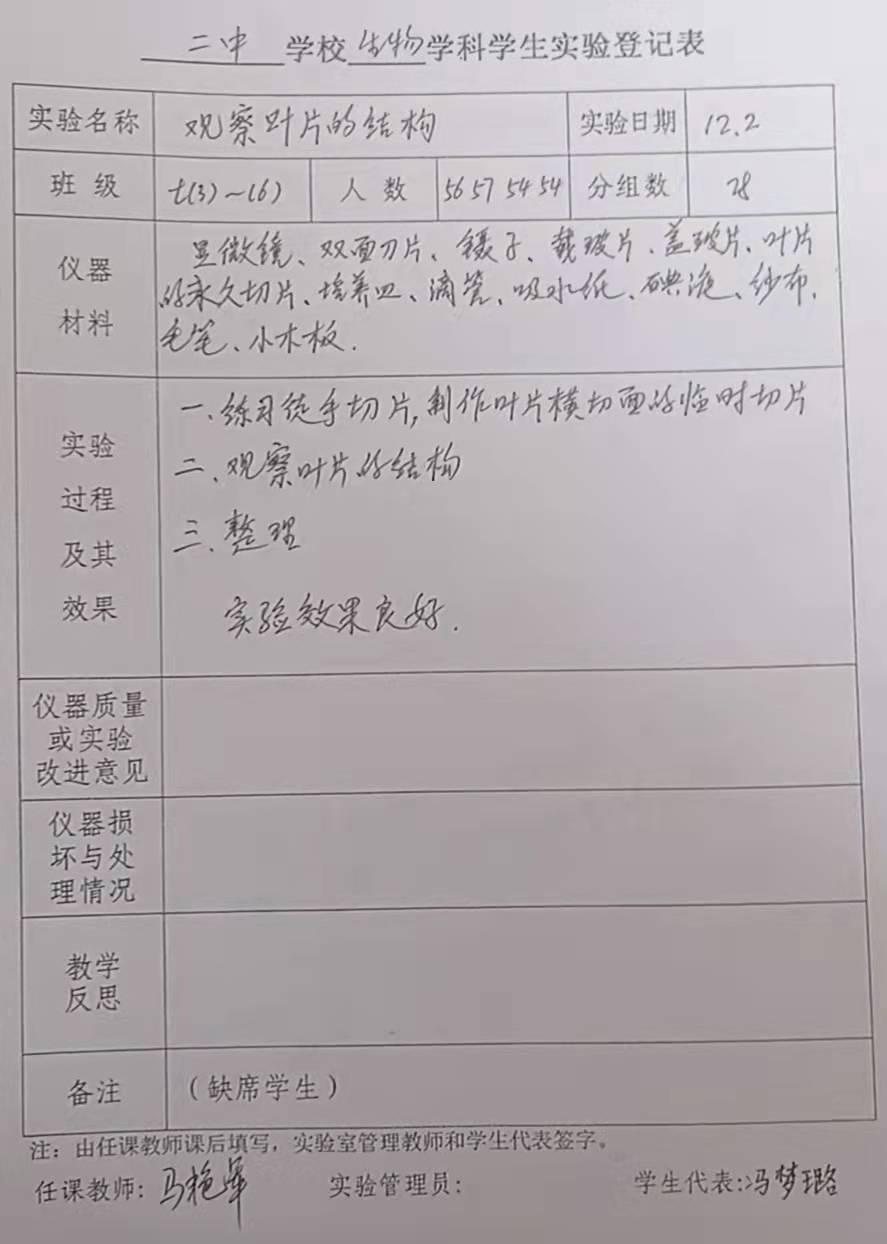 二中学校生物学科学生实验登记表
实验名称 观察叶片的结构 实验日期 12.2
班级 七(3)~(6) 人数 56 57 54 54 分组数 28
仪器
材料
显微镜、双面刀片、镊子、载玻片、盖玻片、叶片
的永久切片、培养皿、滴管、吸水纸、碘液、纱布、
毛笔、小木板.
实验
过程
及其
效果
一、练习徒手切片,制作叶片横切面的临时切片
二、观察叶片的结构
三、整理
实验效果良好.
仪器质量
或实验
改进意见
仪器损
坏与处
理情况
教学
反思
备注 (缺席学生)
注：由任课教师课后填写，实验室管理教师和学生代表签字。
任课教师: 马艳 实验管理员: 学生代表:冯梦璐